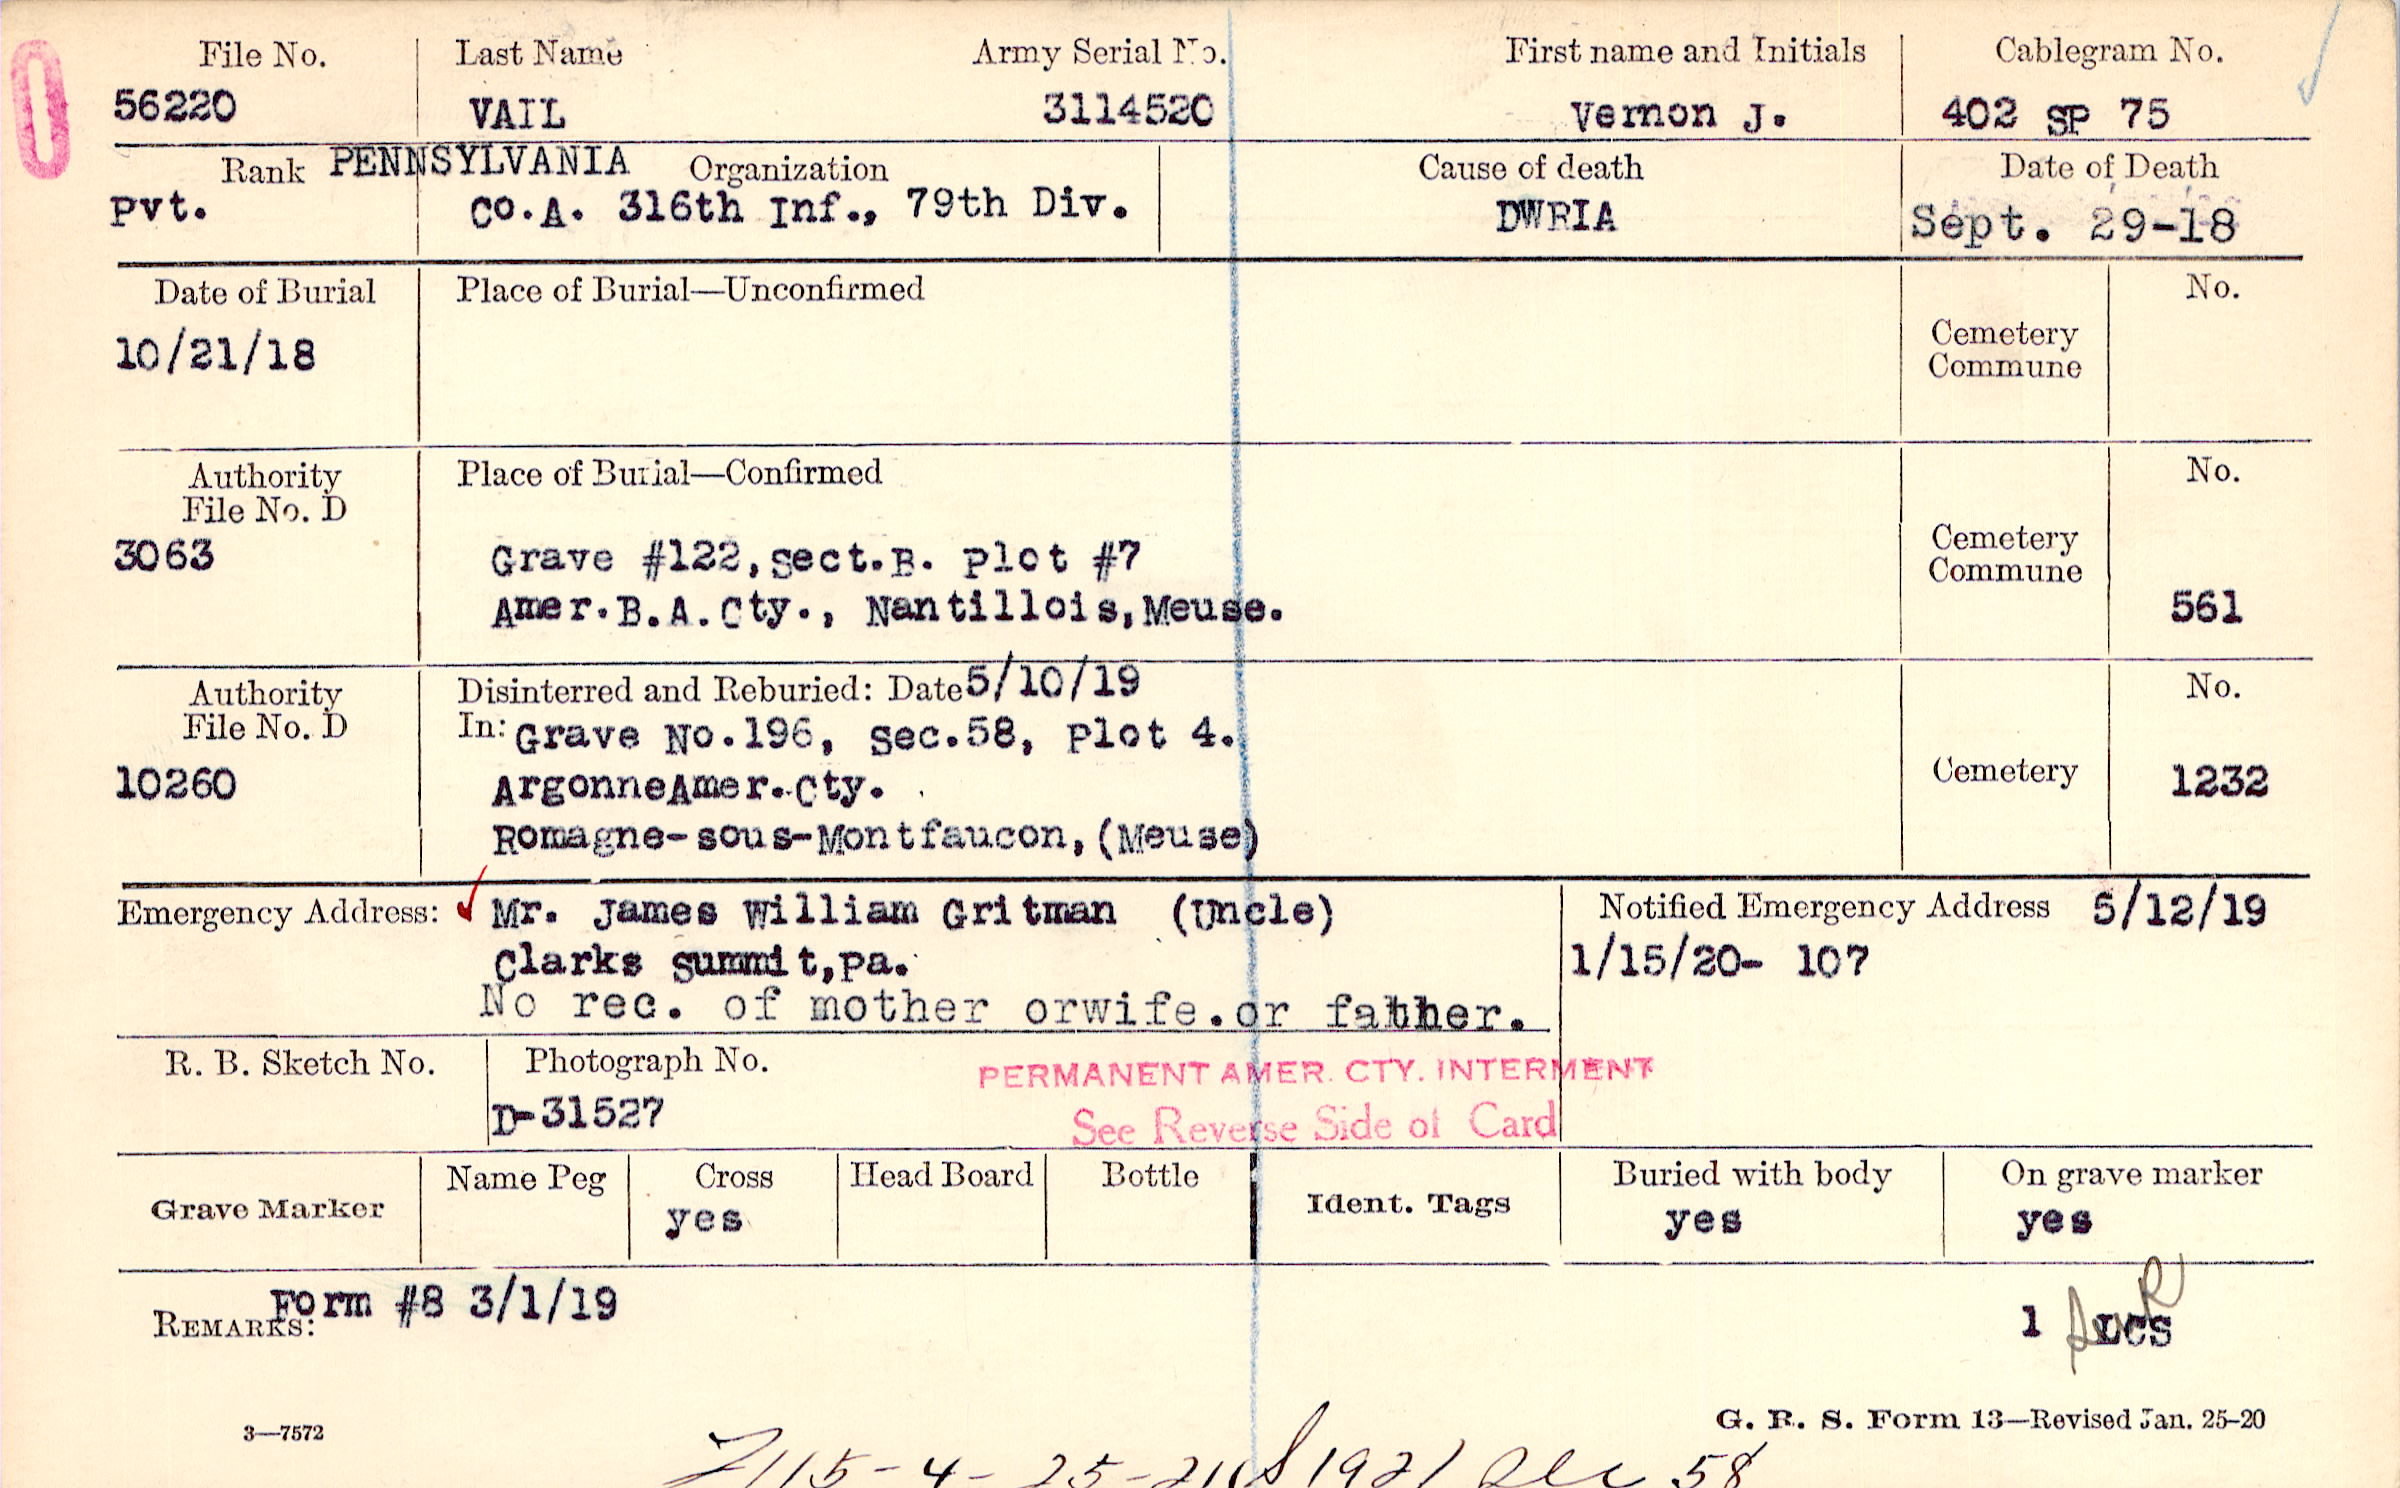 File No. Last Name Army Serial No. First name and Initials Cablegram No.
56220 VAIL 3114520 Vernon J. 402 SP 75
Rank PENNSYLVANIA Organization Cause of death Date of Death
Pvt. Co.A. 316th Inf., 79th Div. DWRIA Sept. 29-18
Date of Burial Place of Burial—Unconfirmed No.
10/21/18 Cemetery
Commune
Authority Place of Burial—Confirmed No.
File No. D
3063 Grave #122,Sect.B. Plot #7 Cemetery
Commune
Amer.B.A.Cty., Nantillois,Meuse. 561
Authority Disinterred and Reburied: Date 5/10/19 No.
File No. D In: Grave No.196, Sec.58, Plot 4.
10260 ArgonneAmer.Cty. Cemetery 1232
Romagne-sous-Montfaucon,(Meuse)
Emergency Address: Mr. James William Gritman (Uncle) Notified Emergency Address 5/12/19
Clarks Summit,Pa. 1/15/20- 107
No rec. of mother orwife.or father.
R. B. Sketch No. Photograph No. PERMANENT AMER. CTY. INTERMENT
D-31527 See Reverse Side of Card
Grave Marker Name Peg Cross Head Board Bottle Ident. Tags Buried with body On grave marker
yes yes yes
REMARKS: Form #8 3/1/19 1 LCS
3—7572 G. R. S. Form 13—Revised Jan. 25-20
1921 58